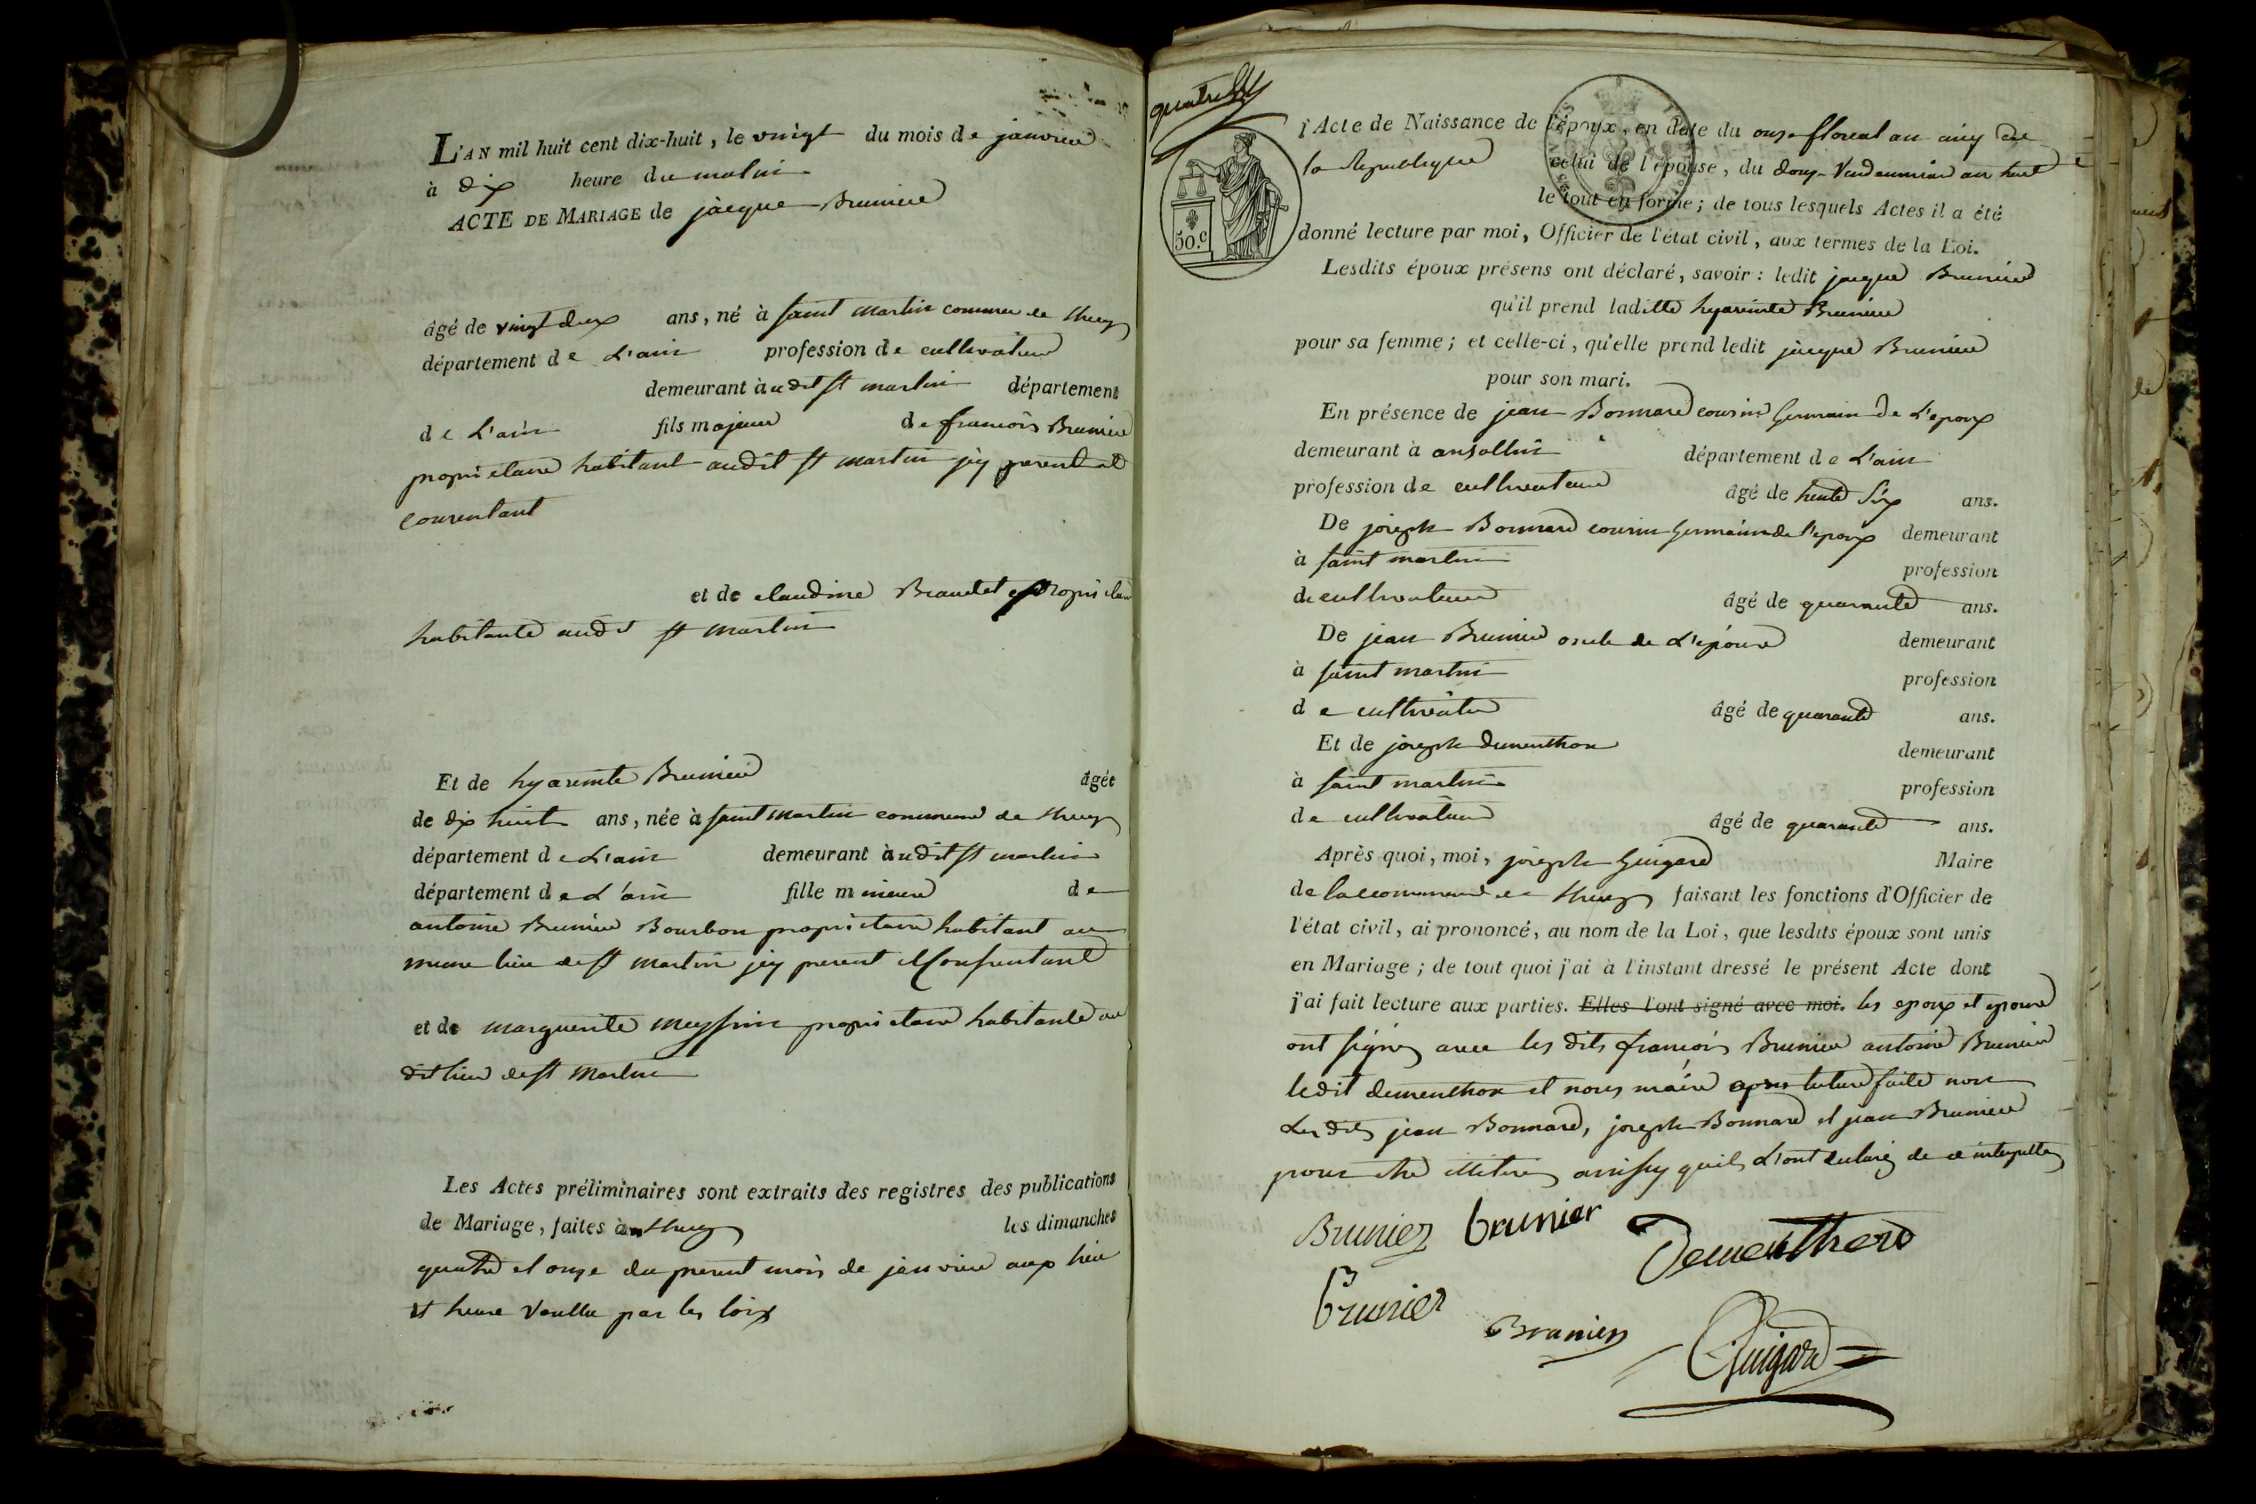 L'AN mil huit cent dix-huit, le vingt du mois de janvier
à dix heure du matin
ACTE DE MARIAGE de jacque Brunier
âgé de vingt deux ans, né à saint martin commune de
département de L'ain profession de cultivateur
demeurant àudit st martin département
de L'ain fils majeur de francois Brunier
proprietaire habitant audit st martin jcy present et
consentant
et de claudine proprietaire
habitante audit st martin
Et de hyacinte Brunier âgée
de dix huit ans, née à saint martin commune de
département de L'ain demeurant àudit st martin
département de L'ain fille mineure de
antoine Brunier Bourbon proprietaire habitant au
meme lieu de st martin jcy present et Consentant
et de marguerite meyssin proprietaire habitante au
dit lieu de st martin
Les Actes préliminaires sont extraits des registres des publications
de Mariage, faites à les dimanches
quatre et onze du present mois de janvier aux lieu
et heure Voullu par les loix
quatre
50.c
l'Acte de Naissance de l'époux, en date du onze floreal an cinq de
la Republique celui de l'épouse, du douze Vendemiaire an huit
le tout en forme; de tous lesquels Actes il a été
donné lecture par moi, Officier de l'état civil, aux termes de la Loi.
Lesdits époux présens ont déclaré, savoir: ledit jacque Brunier
qu'il prend laditte hyacinte Brunier
pour sa femme; et celle-ci, qu'elle prend ledit jacque Brunier
pour son mari.
En présence de jean Bonnard cousin Germain de L'epoux
demeurant à ansollin département de L'ain
profession de cultivateur âgé de trente Six ans.
De joseph Bonnard cousin Germain de l'epoux demeurant
à saint martin profession
de cultivateur âgé de quarante ans.
De jean Brunier oncle de L'epouse demeurant
à saint martin profession
de cultivateur âgé de quarante ans.
Et de joseph dementhon demeurant
à saint martin profession
de cultivateur âgé de quarante ans.
Après quoi, moi, joseph Guigard Maire
de la commune de faisant les fonctions d'Officier de
l'état civil, ai prononcé, au nom de la Loi, que lesdits époux sont unis
en Mariage; de tout quoi j'ai à l'instant dressé le présent Acte dont
j'ai fait lecture aux parties. Elles l'ont signé avec moi. les epoux et epouse
ont signés avec les dits francois Brunier antoine Brunier
ledit dementhon et nous maire apres lecture faite non
Les dits jean Bonnard, joseph Bonnard et jean Brunier
pour etre illiterés ainsy quils L'ont declaré de ce interpellés
Brunier brunier
Dementhon
Brunier
Brunier
Guigard